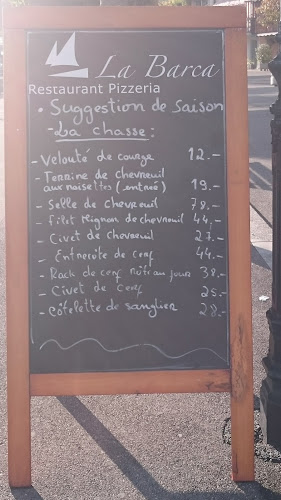 La Barca
Restaurant Pizzeria
• Suggestion de Saison
- La chasse :
- Velouté de courge 12.-
- Terrine de chevreuil
aux noisettes (entrée) 19.-
- Selle de chevreuil 78.-
- filet Mignon de chevreuil 44.-
- Civet de chevreuil 27.-
- Entrecôte de cerf 44.-
- Rack de cerf rôti au four 38.-
- Civet de cerf 25.-
- Côtelette de sanglier 28.-